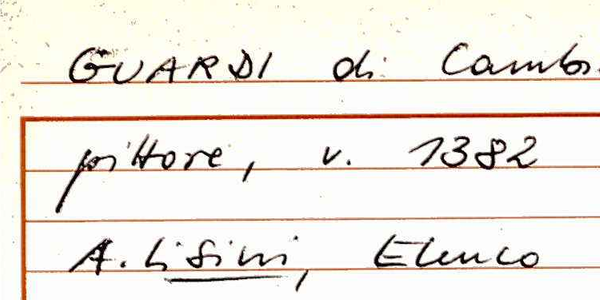 GUARDI di Camb
pittore, v. 1382
A. Lisini, Elenco